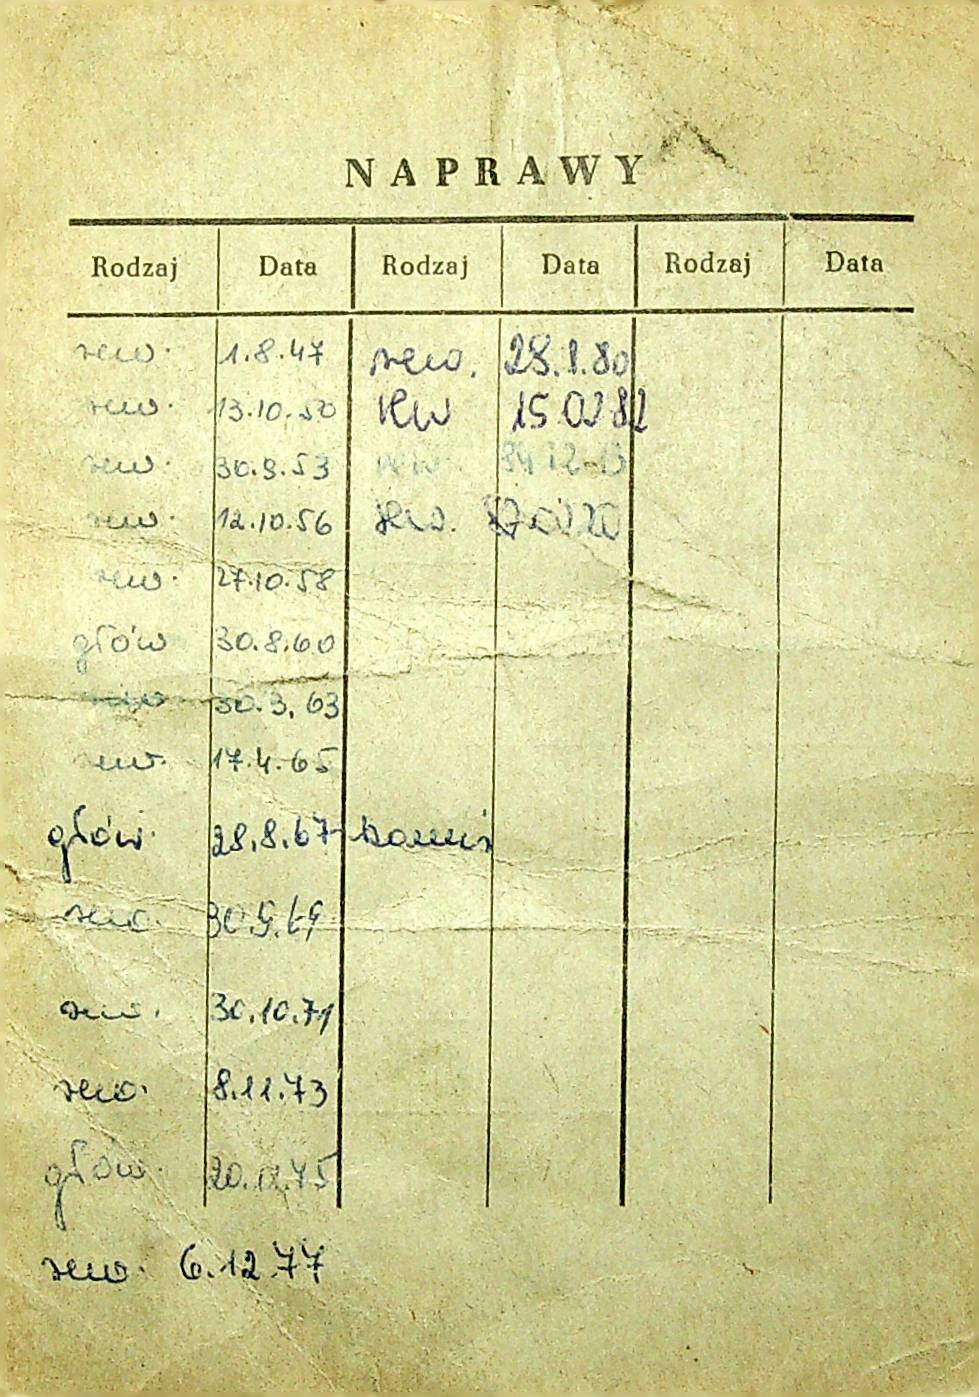 NAPRAWY
Rodzaj Data Rodzaj Data Rodzaj Data
rew. 1.8.47 rew. 28.1.80
rew. 13.10.50 rew 15.02.82
rew. 30.9.53
rew. 12.10.56 rew.
rew. 27.10.58
głów 30.8.60
rew. 30.3.63
rew. 17.4.65
głów. 28.8.67
rew. 30.9.69
rew. 30.10.71
rew. 8.11.73
głów. 20.12.75
rew. 6.12.77